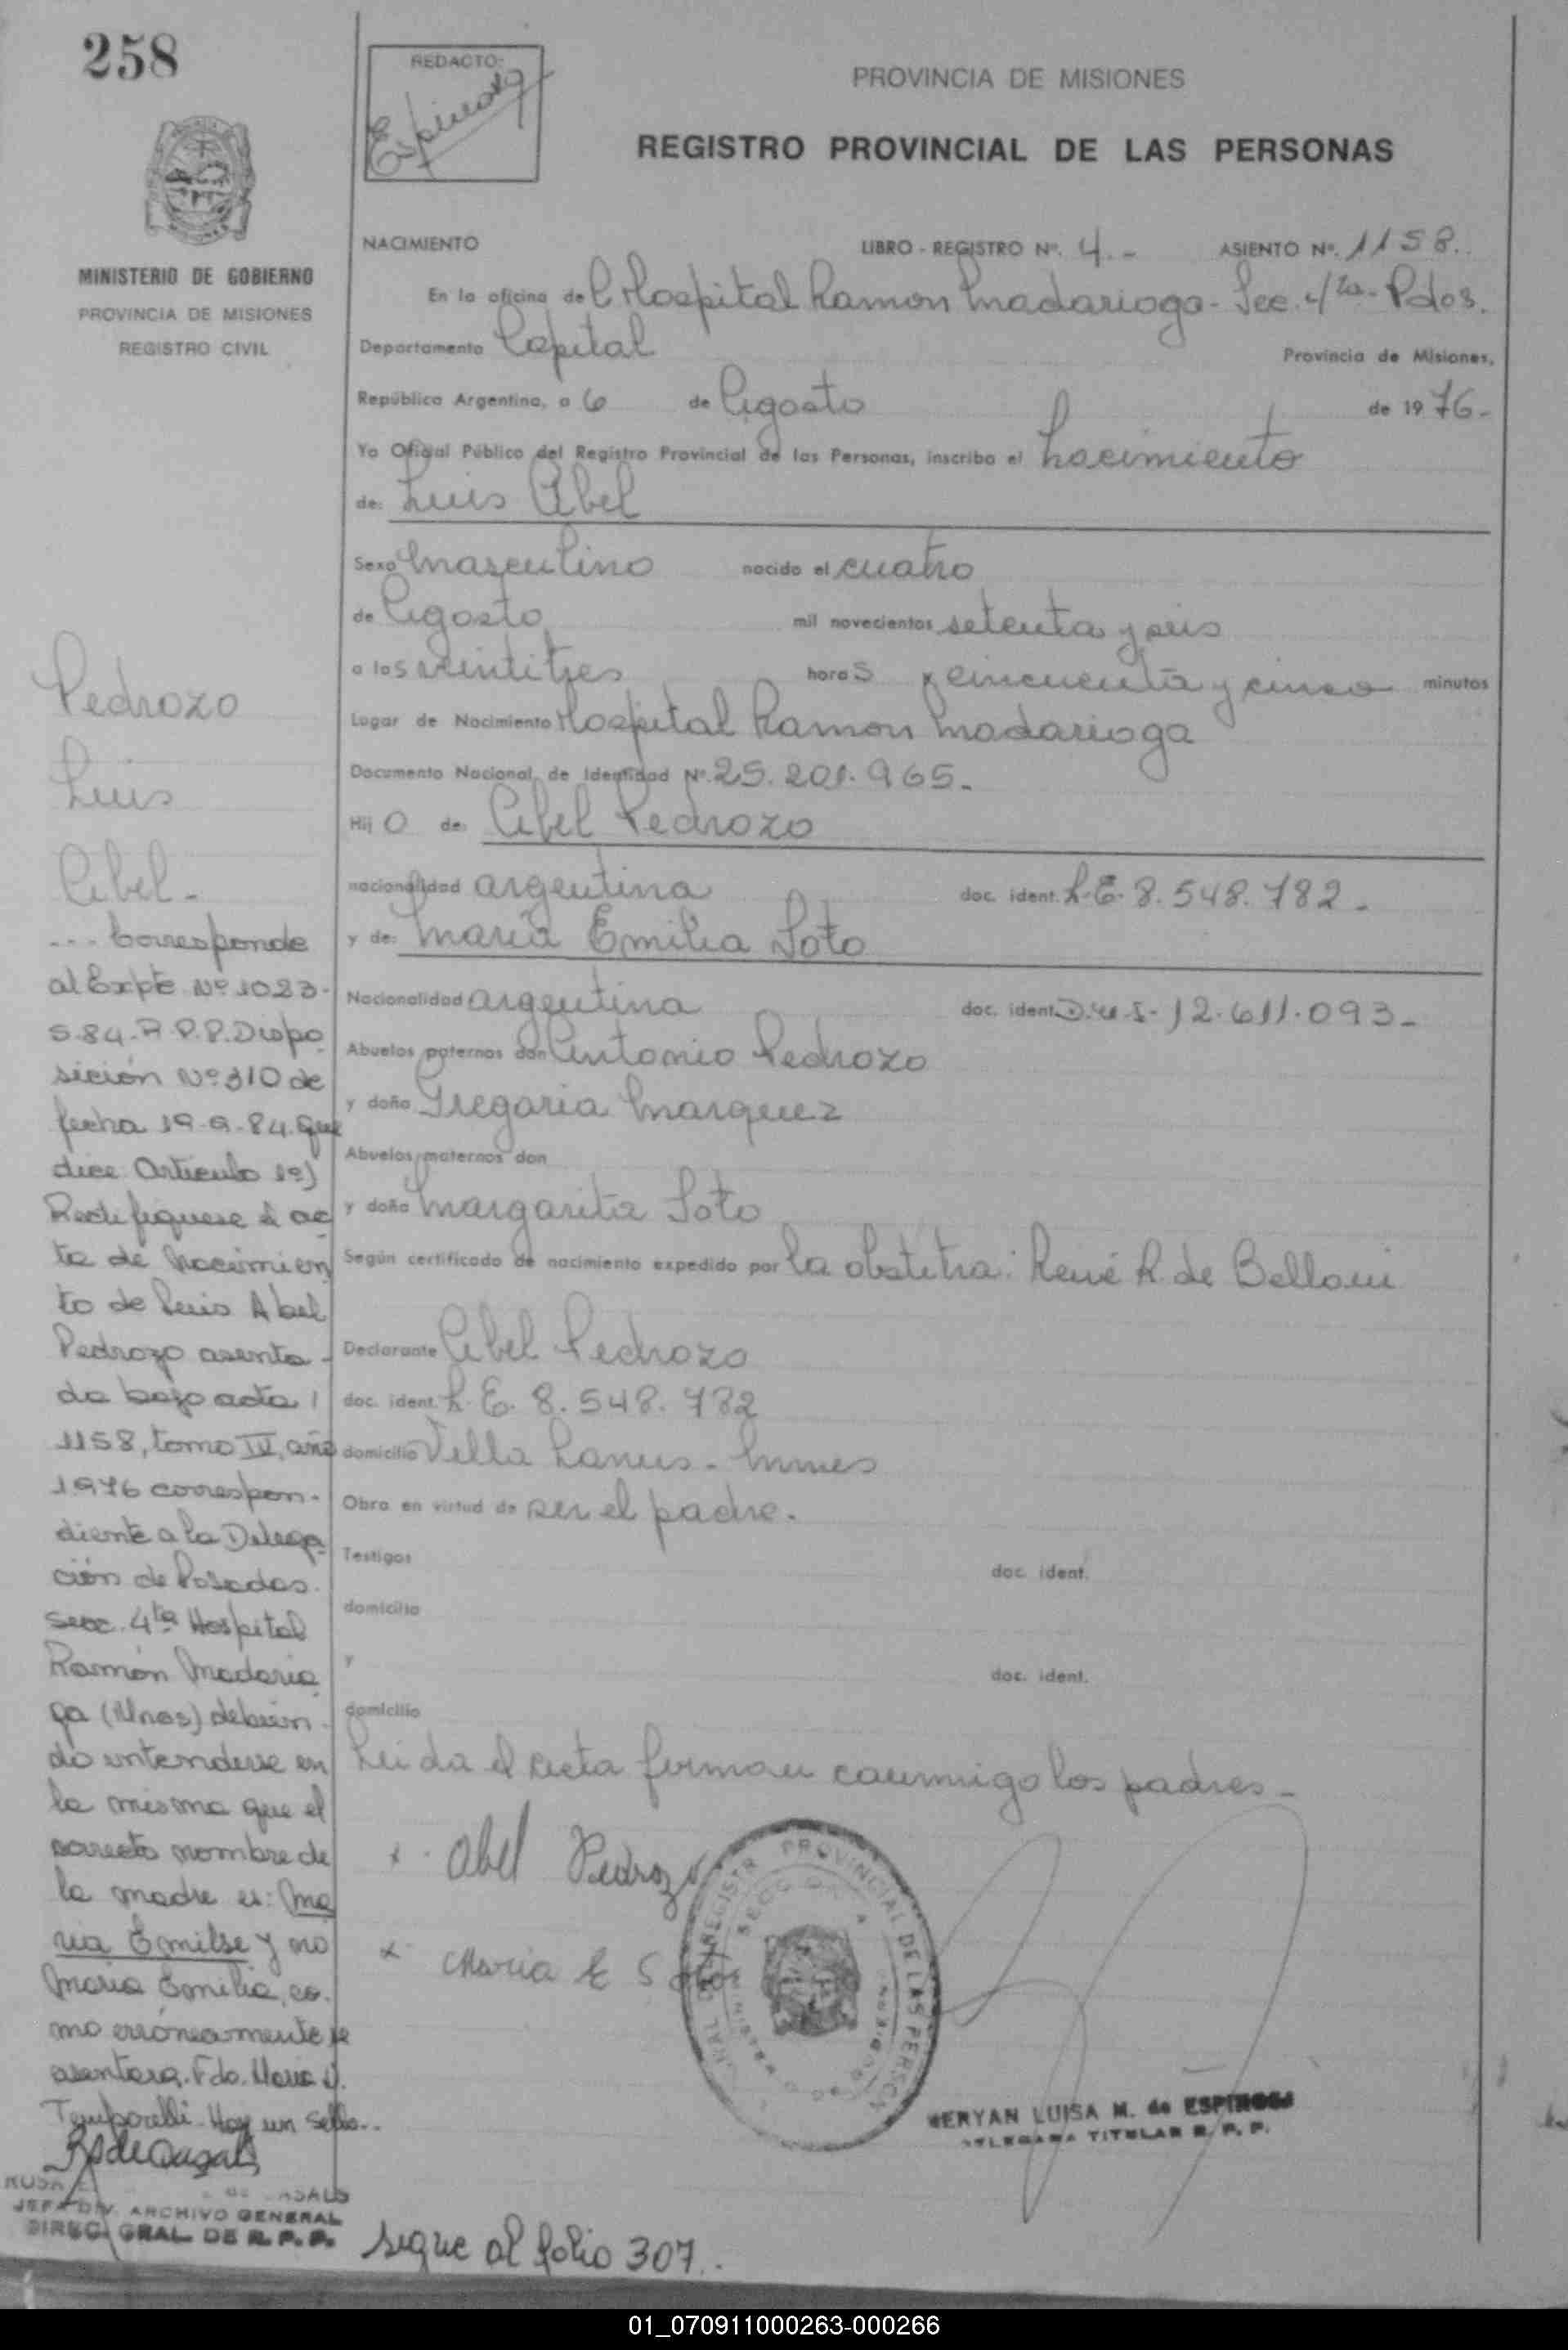 258
REDACTO:
Espinosa
PROVINCIA DE MISIONES
REGISTRO PROVINCIAL DE LAS PERSONAS
MINISTERIO DE GOBIERNO
PROVINCIA DE MISIONES
REGISTRO CIVIL
NACIMIENTO LIBRO - REGISTRO Nº. 4.- ASIENTO Nº. 1158..
En la oficina de Hospital Ramon Madariaga - Sec. 4ta - Pdas.
Departamento Capital Provincia de Misiones,
República Argentina, a 6 de Agosto de 1976-
Yo Oficial Público del Registro Provincial de las Personas, inscribo el Nacimiento
de: Luis Abel
Sexo Masculino nacido el cuatro
de Agosto mil novecientos setenta y seis
a las veintitres horas y cincuenta y cinco minutos
Lugar de Nacimiento Hospital Ramon Madariaga
Documento Nacional de Identidad Nº. 25.201.965-
Hijo de: Abel Pedrozo
nacionalidad argentina doc. ident. L.E. 8.548.782-
y de: Maria Emilia Soto
Nacionalidad argentina doc. ident. D.N.I- 12.611.093-
Abuelos paternos don Antonio Pedrozo
y doña Gregoria Marquez
Abuelos maternos don
y doña Margarita Soto
Según certificado de nacimiento expedido por la obstetra: René R. de Belloni
Declarante Abel Pedrozo
doc. ident. L.E. 8.548.782
domicilio Villa Lanus - Mnes
Obra en virtud de ser el padre.
Testigos doc. ident.
domicilio
y doc. ident.
domicilio
Leida el acta firman conmigo los padres-
x. Abel Pedrozo
x- Maria E Soto
REGISTR PROVINCIAL DE LAS PERSON
MERYAN LUISA M. de ESPINOSA
DELEGADA TITULAR R. P. P.
Pedrozo
Luis
Abel-
... Corresponde
al Expte Nº 1023-
S-84-R.P.P. Dispo
sición Nº 310 de
fecha 19-9-84 que
dice Articulo 1º)
Rectifiquese el ac
ta de Nacimien
to de Luis Abel
Pedrozo asenta-
da bajo acta
1158, tomo IV, año
1976 correspon-
diente a la Delega
ción de Posadas.
Secc. 4ta Hospital
Ramón Madaria
ga (Mnes) debien-
do entenderse en
la misma que el
correcto nombre de
la madre es: Ma
ria Emilse y no
Maria Emilia, co-
mo erróneamente se
asentara. Fdo. Maria
Temporelli. Hay un sello..
ROSA
JEFA DIV. ARCHIVO GENERAL
DIREC. GRAL DE R. P. P.
sigue al folio 307.-
01_070911000263-000266